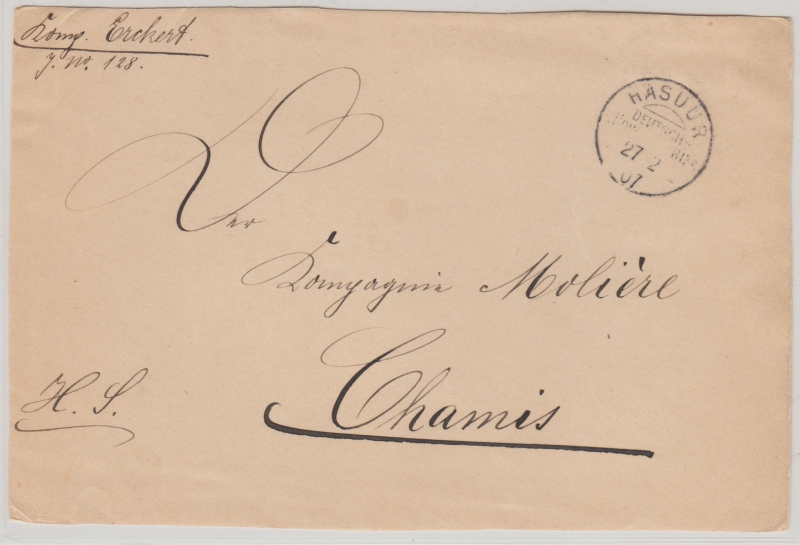 Komp. Erckert.
J. No. 128.
HASUUR
DEUTSCH-
27 2
07
Der
Kompagnie Molière
Chamis
H. S.